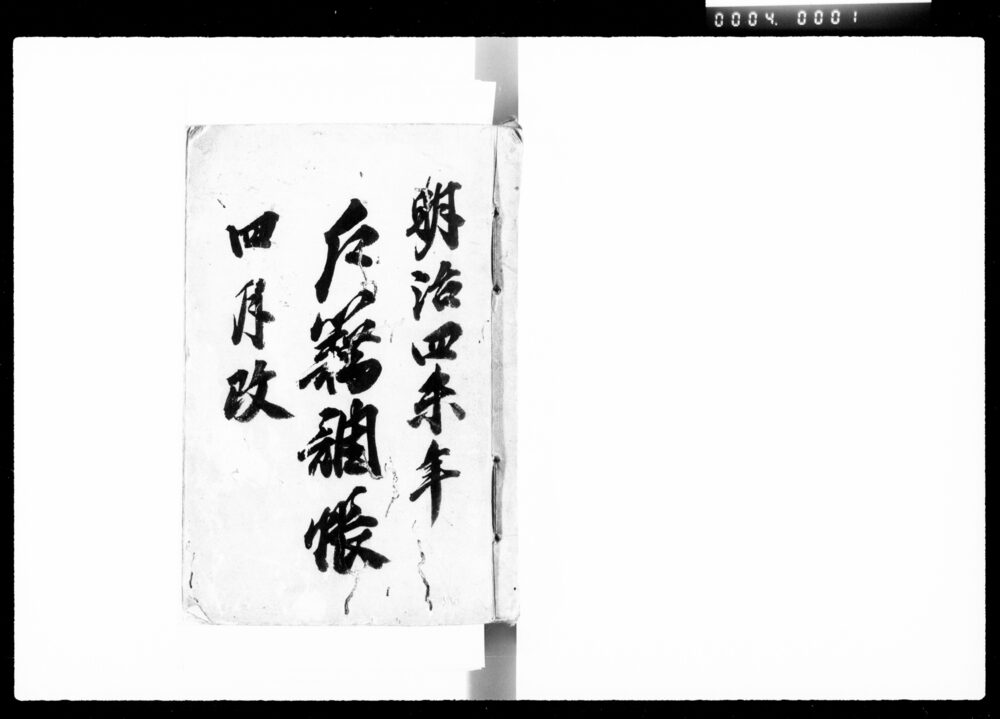 0004. 0001
明治四未年
調帳
四月改